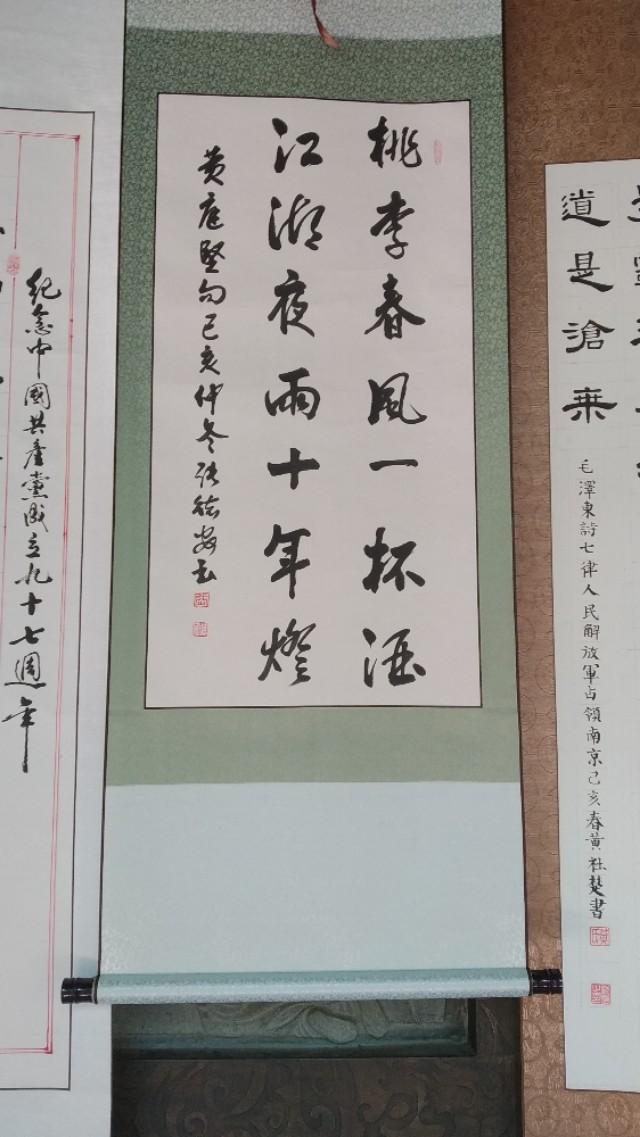 道是滄桒
毛澤東詩七律人民解放軍占領南京己亥春黃社書
桃李春風一杯酒
江湖夜雨十年燈
黄庭堅句己亥仲冬张德安书
紀念中國共產黨成立九十七週年